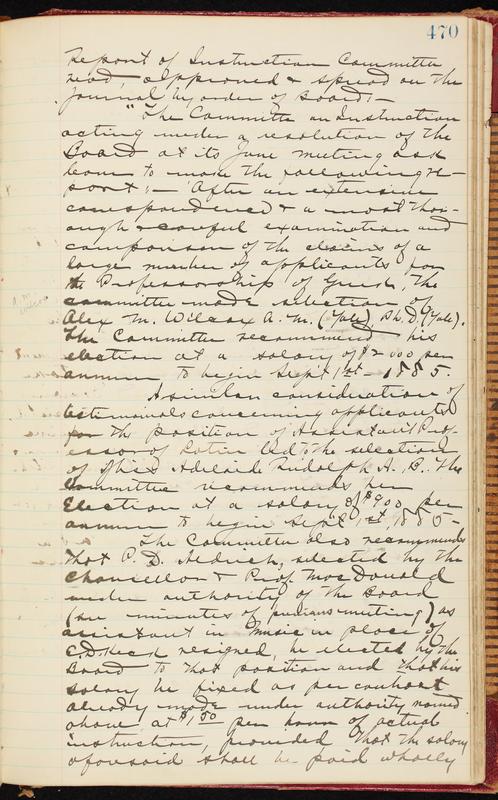 470
Report of Instruction Committee
read, approved & spread on the
Journal by order of Board:-
"The Committee on Instruction
acting under a resolution of the
Board at its June meeting ask
leave to make the following re-
port:- After an extensive
correspondence & a most thor-
ough & careful examination and
comparison of the claims of a
large number of applicants for
the Professorship of Greek, The
committee made selection of
Alex M. Wilcox A.M. (Yale), Ph.D. (Yale).
The Committee recommend his
election at a salary of $2000 per
annum to begin Sept 1st - 1885.
A similar consideration of
testimonials concerning applicants
for the position of Assistant Prof-
essor of Latin led to the selection
of Miss Adelaid Rudolph A.B. The
Committee recommends her
Election at a salary of $900 per
annum to begin Sept 1st, 1885-
The Committee also recommends
that P. D. Aldrich, selected by the
Chancellor & Prof. MacDonald
under authority of the Board
(see minutes of previous meeting) as
assistant in Music in place of
E.D. Keck resigned, be elected by the
Board to that position and that his
salary be fixed as per contract
already made under authority named
above, at $1.50 per hour of actual
instruction, provided that the salary
aforesaid shall be paid wholly